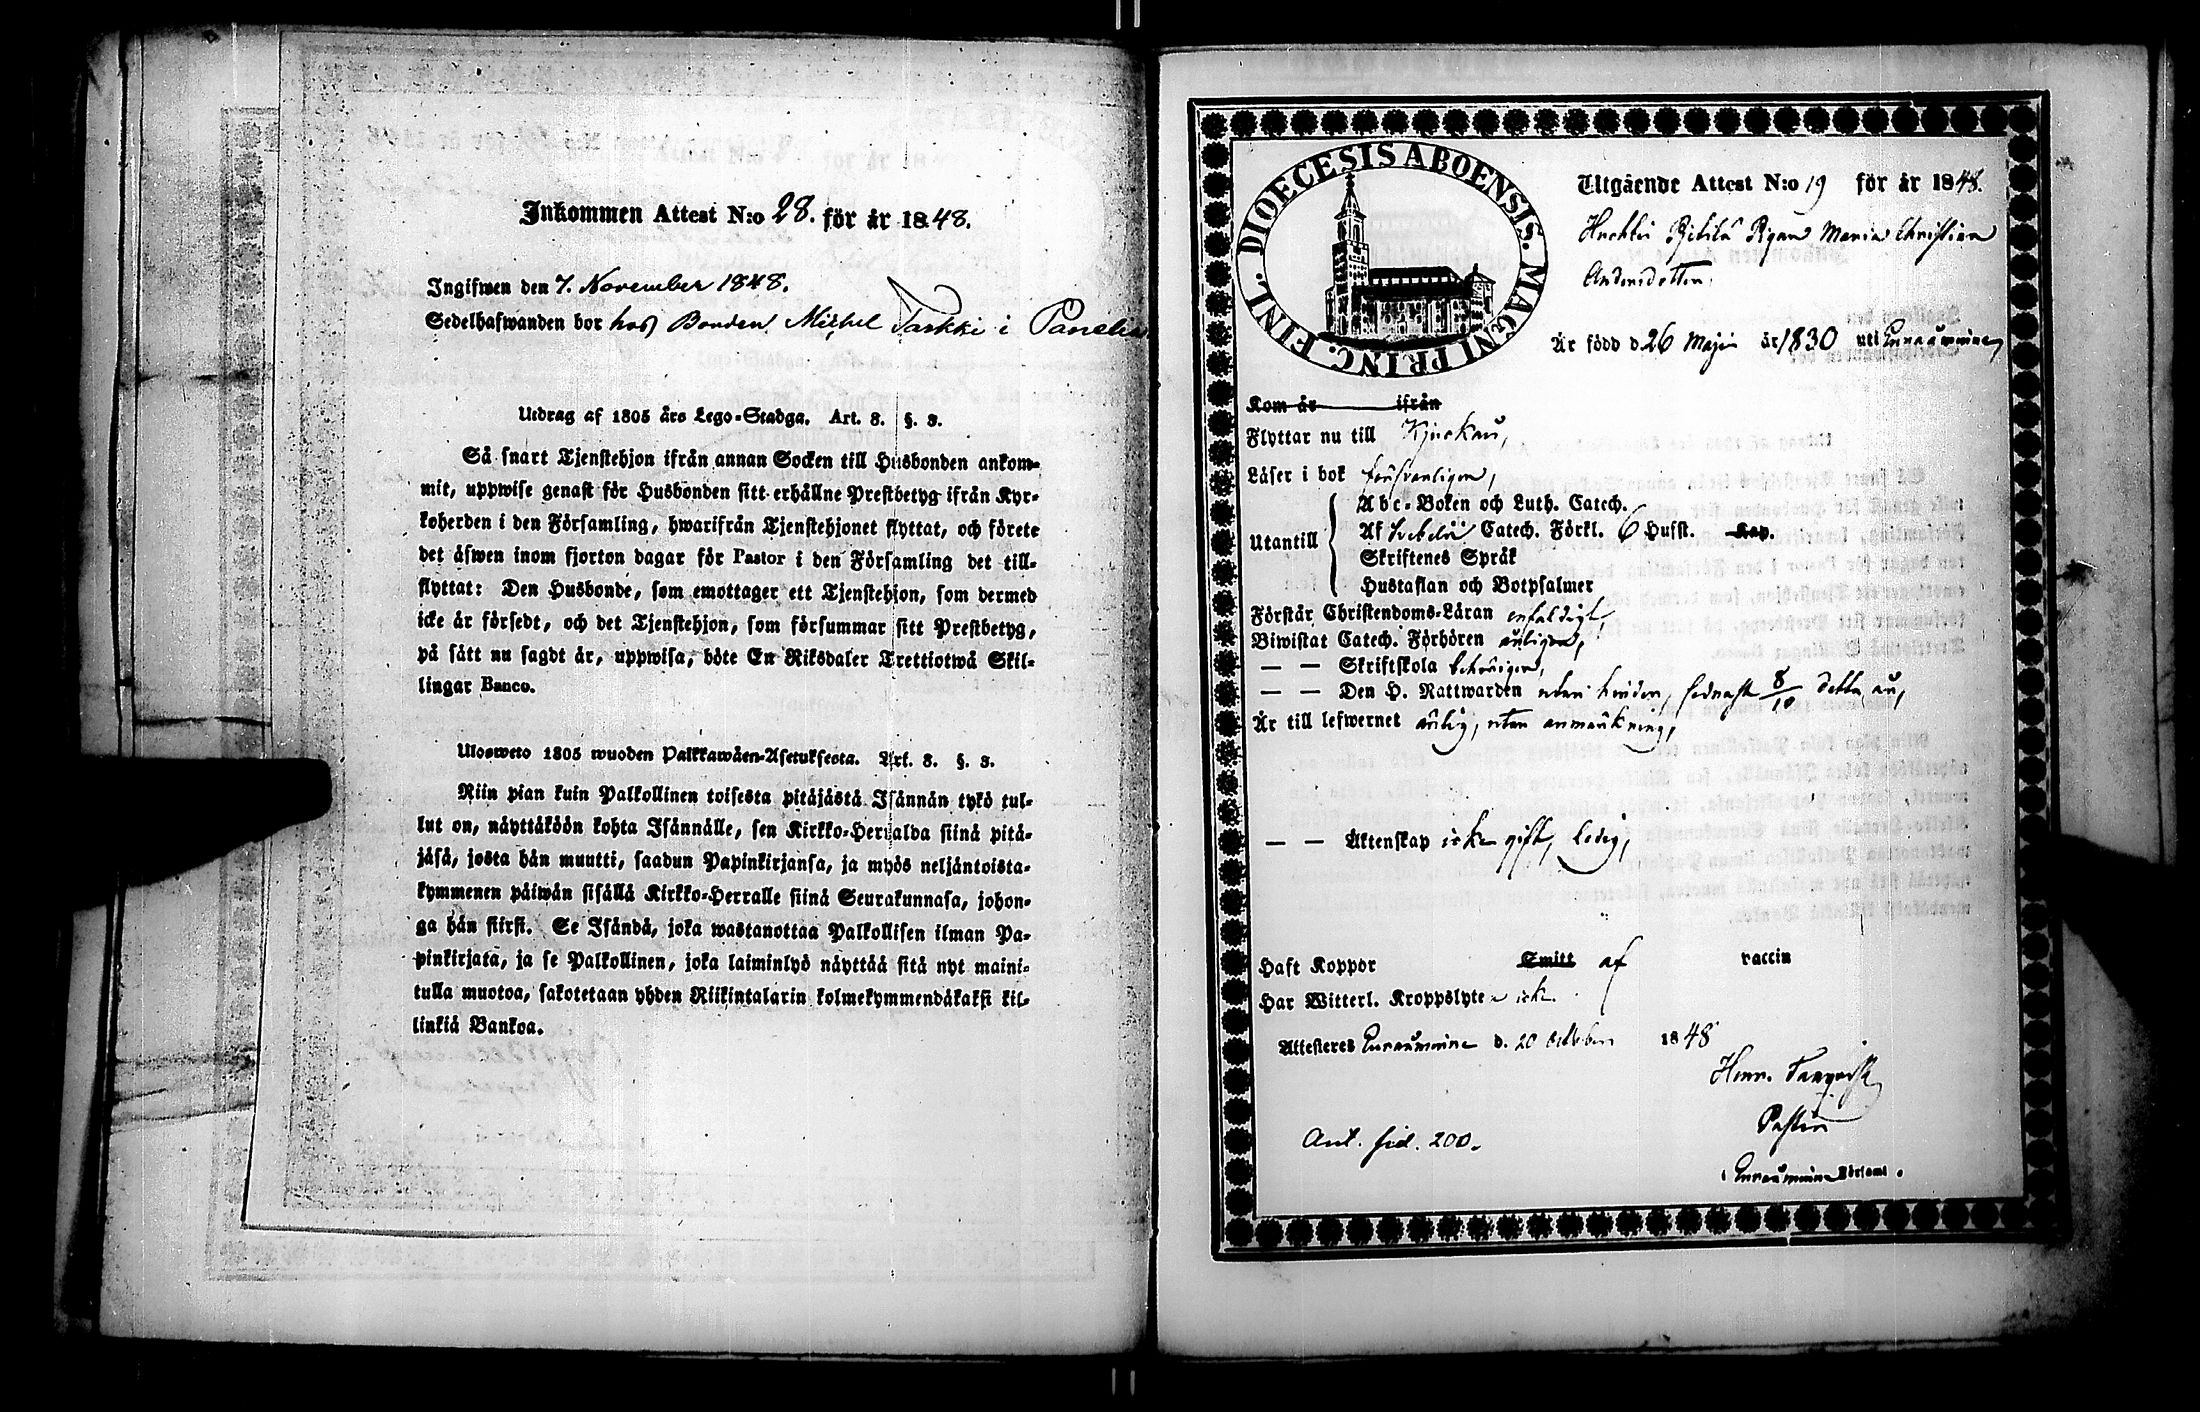 Inkommen Attest N:o 28. för år 1848.
Ingifwen den 7. November 1848.
Sedelhafwanden bor hos Bonden Michel Tarkki i Panelia
Utdrag af 1805 års Lego-Stadga. Art. 3. §. 3.
Så snart Tjenstehjon ifrån annan Socken till Husbonden ankom-
mit, uppwise genast för Husbonden sitt erhållne Prestbetyg ifrån Kyr-
koherden i den Församling, hwarifrån Tjenstehjonet flyttat, och förete
det äfwen inom fjorton dagar för Pastor i den Församling det till-
flyttat: Den Husbonde, som emottager ett Tjenstehjon, som dermed
icke är försedt, och det Tjenstehjon, som försummar sitt Prestbetyg,
på sätt nu sagdt är, uppwisa, böte En Riksdaler Trettiotwå Skil-
lingar Banco.
Ulosweto 1805 wuoden Palkkawäen-Asetuksesta. Art. 3. §. 3.
Niin pian kuin Palkollinen toisesta pitäjästä Isännän tykö tul-
lut on, näyttäköön kohta Isännälle, sen Kirkko-Herralda siinä pitä-
jäsä, josta hän muutti, saadun Papinkirjansa, ja myös neljäntoista-
kymmenen päiwän sisällä Kirkko-Herralle siinä Seurakunnasa, johon-
ga hän siirst. Se Isändä, joka wastanottaa Palkollisen ilman Pa-
pinkirjata, ja se Palkollinen, joka laiminlyö näyttää sitä nyt maini-
tulla muotoa, sakotetaan yhden Riikintalarin kolmekymmendäkaksi kil-
linkiä Bankoa.
DIOECESIS ABOENSIS. MAGNI PRINC. FINL.
Utgående Attest N:o 19 för år 1848.
Pigan Maria Christina
Andersdotter,
Är född d. 26 Maji år 1830 uti Euraåminne,
Kom år ifrån
Flyttar nu till Kjukais,
Läser i bok försvarligen,
Abc-Boken och Luth. Catech.
Utantill Af Svebelii Catech. Förkl. 6 Hufst. Kap.
Skriftenes Språk
Hustaflan och Botpsalmer
Förstår Christendoms-Läran enfaldigt,
Biwistat Catech. Förhören årligen,
— — Skriftskola behörigen,
— — Den H. Nattwarden utan hinder, sednast 8/10 detta år,
Är till lefwernet ärlig, utan anmärkning,
— — Äktenskap icke gift, ledig,
Haft Koppor Smitt af vaccin
Har Witterl. Kroppslyte icke.
Attesteras Euraåminne d. 20 October 1848
Henr.
Pastor
i Euraåminne Församl.
Ant. sid. 200.